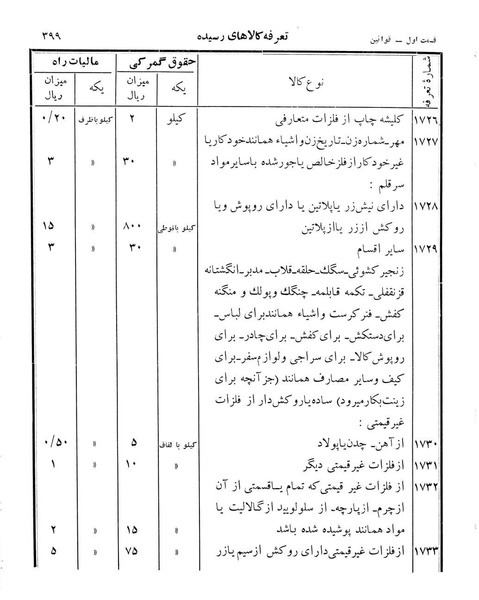 قسمت اول ــ قوانین تعرفه کالاهای رسیده ۳۹۹
شمارهٔ تعرفه نوع کالا حقوق گمرکی مالیات راه
یکه میزان ریال یکه میزان ریال
۱۷۲۶ کلیشه چاپ از فلزات متعارفی کیلو ۲ کیلو باظرف ۰/۲۰
۱۷۲۷ مهر ــ شماره‌زن ــ تاریخ‌زن و اشیاء همانند خودکار یا
غیر خودکار از فلز خالص یا جور شده با سایر مواد » ۳۰ » ۳
سر قلم :
۱۷۲۸ دارای نیش زر یا پلاتین یا دارای روپوش و یا
روکش از زر یا از پلاتین کیلو باقوطی ۸۰۰ » ۱۵
۱۷۲۹ سایر اقسام » ۳۰ » ۳
زنجیر کشوئی ــ سگک ــ حلقه ــ قلاب ــ مدبر ــ انگشتانه
قزنقفلی ــ تکمه قابلمه ــ چنگک و پولک و منگنه
کفش ــ فنر کرست و اشیاء همانند برای لباس ــ
برای دستکش ــ برای کفش ــ برای چادر ــ برای
روپوش کالا ــ برای سراجی و لوازم سفر ــ برای
کیف و سایر مصارف همانند (جز آنچه برای
زینت بکار میرود) ساده یا روکش‌دار از فلزات
غیر قیمتی :
۱۷۳۰ از آهن ــ چدن یا پولاد کیلو با لفاف ۵ » ۰/۵۰
۱۷۳۱ از فلزات غیر قیمتی دیگر » ۱۰ » ۱
۱۷۳۲ از فلزات غیر قیمتی که تمام یا قسمتی از آن
از چرم ــ از پارچه ــ از سلولویید از گالالیت یا
مواد همانند پوشیده شده باشد » ۱۵ » ۲
۱۷۳۳ از فلزات غیر قیمتی دارای روکش از سیم یا زر » ۷۵ » ۵